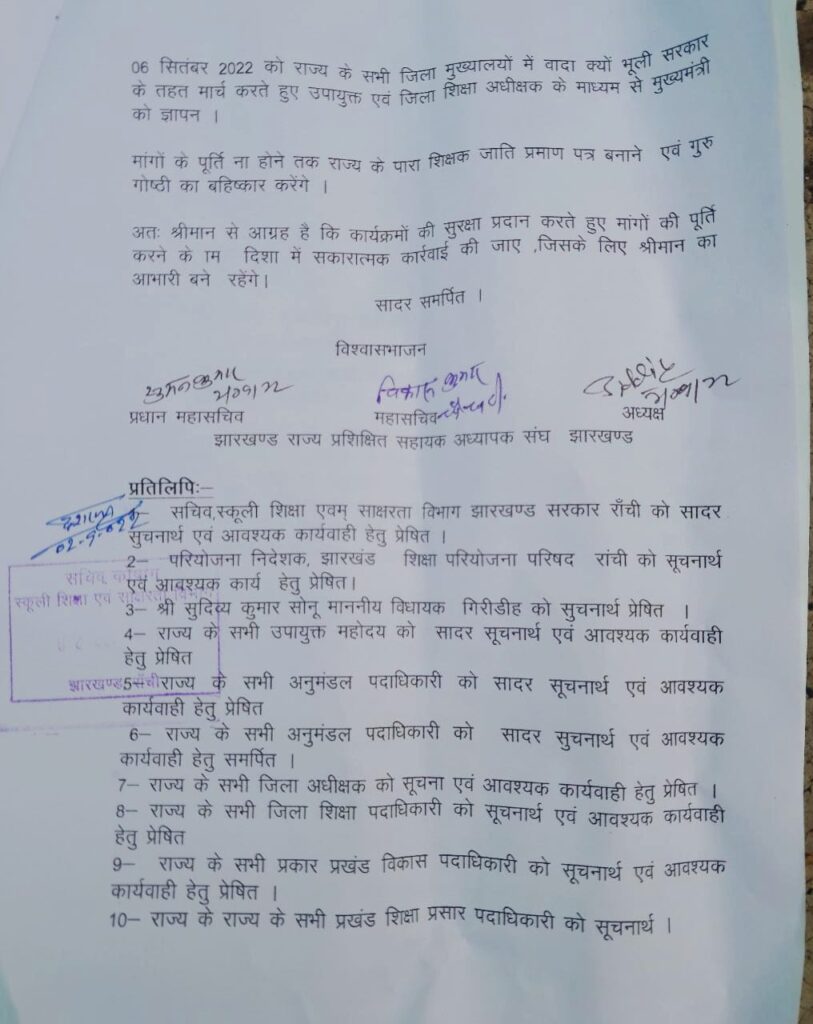 06 सितंबर 2022 को राज्य के सभी जिला मुख्यालयों में वादा क्यों भूली सरकार
के तहत मार्च करते हुए उपायुक्त एवं जिला शिक्षा अधीक्षक के माध्यम से मुख्यमंत्री
को ज्ञापन ।
मांगों के पूर्ति ना होने तक राज्य के पारा शिक्षक जाति प्रमाण पत्र बनाने एवं गुरु
गोष्ठी का बहिष्कार करेंगे ।
अतः श्रीमान से आग्रह है कि कार्यक्रमों की सुरक्षा प्रदान करते हुए मांगों की पूर्ति
करने के ाम दिशा में सकारात्मक कार्रवाई की जाए ,जिसके लिए श्रीमान का
आभारी बने रहेंगे।
सादर समर्पित ।
विश्वासभाजन
विकास कुमार
प्रधान महासचिव महासचिव अध्यक्ष
झारखण्ड राज्य प्रशिक्षित सहायक अध्यापक संघ झारखण्ड
प्रतिलिपिः–
सचिव,स्कूली शिक्षा एवम् साक्षरता विभाग झारखण्ड सरकार राँची को सादर
सुचनार्थ एवं आवश्यक कार्यवाही हेतु प्रेषित ।
2– परियोजना निदेशक, झारखंड शिक्षा परियोजना परिषद रांची को सूचनार्थ
एवं आवश्यक कार्य हेतु प्रेषित।
3– श्री सुदिव्य कुमार सोनू माननीय विधायक गिरीडीह को सुचनार्थ प्रेषित ।
4– राज्य के सभी उपायुक्त महोदय को सादर सूचनार्थ एवं आवश्यक कार्यवाही
हेतु प्रेषित
5–राज्य के सभी अनुमंडल पदाधिकारी को सादर सूचनार्थ एवं आवश्यक
कार्यवाही हेतु प्रेषित
6– राज्य के सभी अनुमंडल पदाधिकारी को सादर सुचनार्थ एवं आवश्यक
कार्यवाही हेतु समर्पित ।
7– राज्य के सभी जिला अधीक्षक को सूचना एवं आवश्यक कार्यवाही हेतु प्रेषित ।
8– राज्य के सभी जिला शिक्षा पदाधिकारी को सूचनार्थ एवं आवश्यक कार्यवाही
हेतु प्रेषित
9– राज्य के सभी प्रकार प्रखंड विकास पदाधिकारी को सूचनार्थ एवं आवश्यक
कार्यवाही हेतु प्रेषित ।
10– राज्य के राज्य के सभी प्रखंड शिक्षा प्रसार पदाधिकारी को सूचनार्थ ।
सचिव कार्यालय
स्कूली शिक्षा एवं साक्षरता विभाग
झारखण्ड राँची